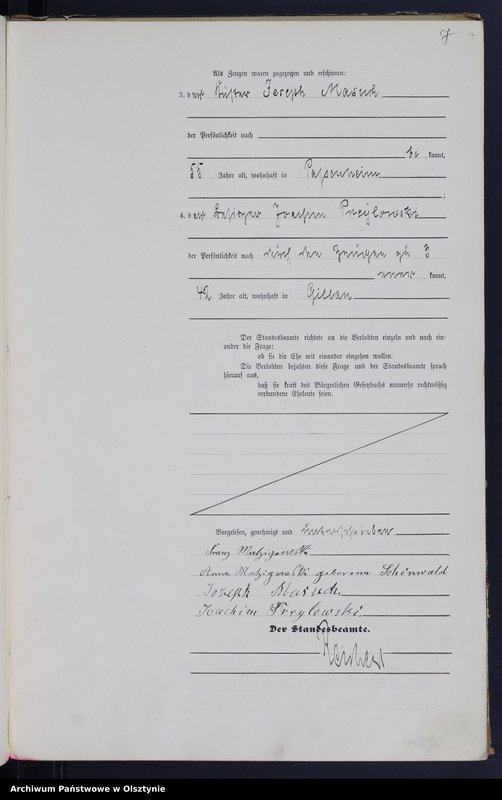 7
Als Zeugen waren zugezogen und erschienen:
3. der Küster Joseph Masuch
der Persönlichkeit nach
be kannt,
55 Jahre alt, wohnhaft in Passenheim
;
4. der Besitzer Joachim Preylowski
der Persönlichkeit nach durch den Zeugen zu 3
aner kannt,
42 Jahre alt, wohnhaft in Gillau
Der Standesbeamte richtete an die Verlobten einzeln und nach ein-
ander die Frage:
ob sie die Ehe mit einander eingehen wollen.
Die Verlobten bejahten diese Frage und der Standesbeamte sprach
hierauf aus,
daß sie kraft des Bürgerlichen Gesetzbuchs nunmehr rechtmäßig
verbundene Eheleute seien.
Vorgelesen, genehmigt und unterschrieben
Franz Matzigewski
Anna Matzigewski geborene Schönwald
Joseph Masuch.
Joachim Preylowski.
Der Standesbeamte.
Archiwum Państwowe w Olsztynie